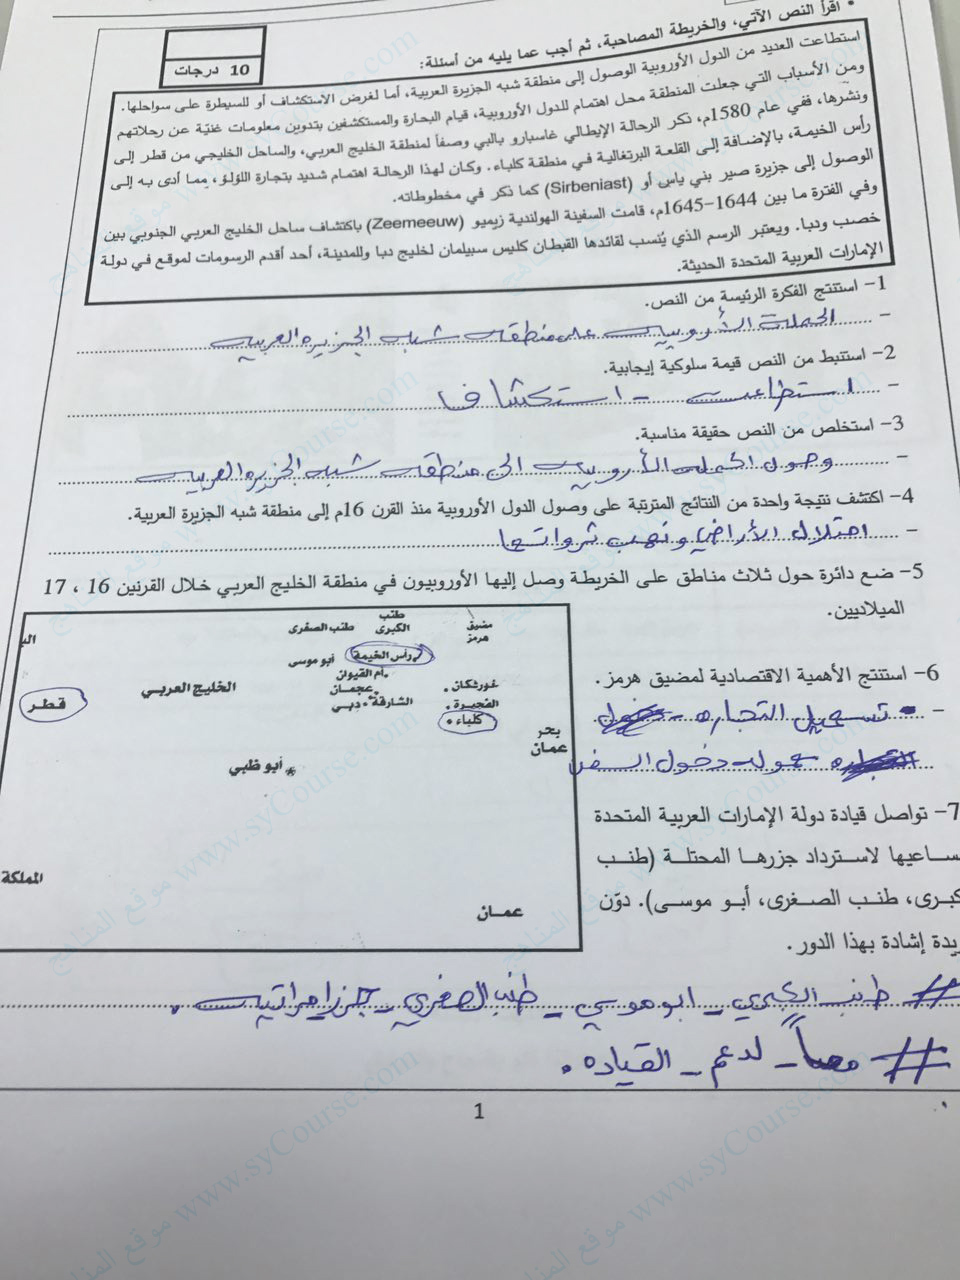 • اقرأ النص الآتي، والخريطة المصاحبة، ثم أجب عما يليه من أسئلة:
10 درجات
استطاعت العديد من الدول الأوروبية الوصول إلى منطقة شبه الجزيرة العربية، أما لغرض الاستكشاف أو للسيطرة على سواحلها.
ومن الأسباب التي جعلت المنطقة محل اهتمام للدول الأوروبية، قيام البحارة والمستكشفين بتدوين معلومات غنيّة عن رحلاتهم
ونشرها، ففي عام 1580م، ذكر الرحالة الإيطالي غاسبارو بالبي وصفاً لمنطقة الخليج العربي، والساحل الخليجي من قطر إلى
رأس الخيمة، بالإضافة إلى القلعة البرتغالية في منطقة كلباء. وكان لهذا الرحالة اهتمام شديد بتجارة اللؤلؤ، مما أدى به إلى
الوصول إلى جزيرة صير بني ياس أو (Sirbeniast) كما ذكر في مخطوطاته.
وفي الفترة ما بين 1644-1645م، قامت السفينة الهولندية زيميو (Zeemeeuw) باكتشاف ساحل الخليج العربي الجنوبي بين
خصب ودبا. ويعتبر الرسم الذي يُنسب لقائدها القبطان كليس سبيلمان لخليج دبا وللمدينة، أحد أقدم الرسومات لموقع في دولة
الإمارات العربية المتحدة الحديثة.
1- استنتج الفكرة الرئيسة من النص.
- الحملات الأروبيه على منطقه شبه الجزيره العربيه
2- استنبط من النص قيمة سلوكية إيجابية.
- استطاعت - استكشاف
3- استخلص من النص حقيقة مناسبة.
- وصول الحملات الأروبيه الى منطقه شبه الجزيره العربيه
4- اكتشف نتيجة واحدة من النتائج المترتبة على وصول الدول الأوروبية منذ القرن 16م إلى منطقة شبه الجزيرة العربية.
- احتلال الأراضي ونهب ثرواتها
5- ضع دائرة حول ثلاث مناطق على الخريطة وصل إليها الأوروبيون في منطقة الخليج العربي خلال القرنين 16 ، 17
الميلاديين.
مضيق هرمز
طنب الكبرى
طنب الصغرى
رأس الخيمة
أبو موسى
أم القيوان
عجمان
الشارقة
دبي
خورفكان
الفجيرة
كلباء
الخليج العربي
قطر
بحر عمان
أبو ظبي
المملكة
عمان
6- استنتج الأهمية الاقتصادية لمضيق هرمز.
- تسهيل التجاره -
دخول السفن
7- تواصل قيادة دولة الإمارات العربية المتحدة
ساعيها لاسترداد جزرها المحتلة (طنب
كبرى، طنب الصغرى، أبو موسى). دوّن
يدة إشادة بهذا الدور.
# طنب الكبرى - ابوموسي - طنب الصغرى - جزر اماراتيه .
# معاً - لدعم - القياده .
1
موقع المناهج www.syCourse.com